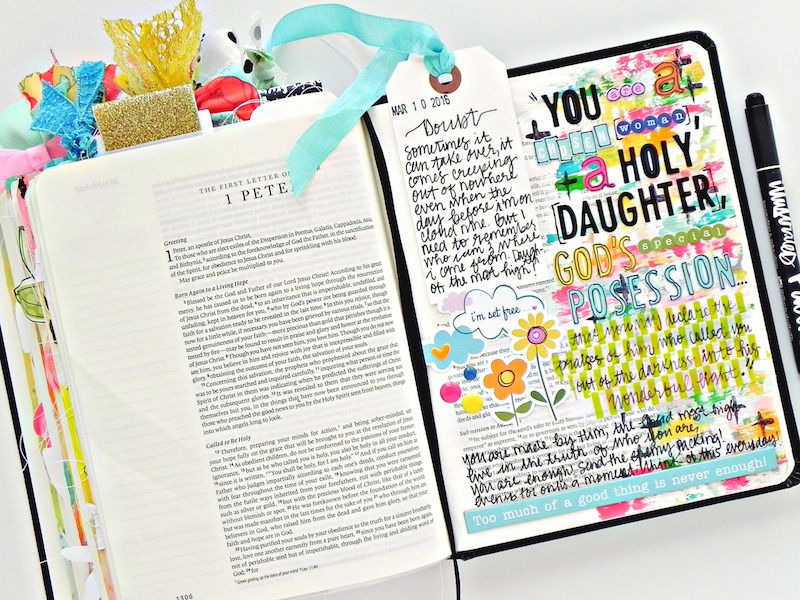 THE FIRST LETTER OF
1 PETER
Greeting
1 Peter, an apostle of Jesus Christ,
To those who are elect exiles of the Dispersion in Pontus, Galatia, Cappadocia, Asia,
and Bithynia, ²according to the foreknowledge of God the Father, in the sanctification
of the Spirit, for obedience to Jesus Christ and for sprinkling with his blood:
May grace and peace be multiplied to you.
Born Again to a Living Hope
³Blessed be the God and Father of our Lord Jesus Christ! According to his great
mercy, he has caused us to be born again to a living hope through the resurrection
of Jesus Christ from the dead, ⁴to an inheritance that is imperishable, undefiled, and
unfading, kept in heaven for you, ⁵who by God's power are being guarded through
faith for a salvation ready to be revealed in the last time. ⁶In this you rejoice, though
now for a little while, if necessary, you have been grieved by various trials, ⁷so that the
tested genuineness of your faith—more precious than gold that perishes though it is
tested by fire—may be found to result in praise and glory and honor at the revelation
of Jesus Christ. ⁸Though you have not seen him, you love him. Though you do not now
see him, you believe in him and rejoice with joy that is inexpressible and filled with
glory, ⁹obtaining the outcome of your faith, the salvation of your souls.
¹⁰Concerning this salvation, the prophets who prophesied about the grace that
was to be yours searched and inquired carefully, ¹¹inquiring what person or time the
Spirit of Christ in them was indicating when he predicted the sufferings of Christ
and the subsequent glories. ¹²It was revealed to them that they were serving not
themselves but you, in the things that have now been announced to you through
those who preached the good news to you by the Holy Spirit sent from heaven, things
into which angels long to look.
Called to Be Holy
¹³Therefore, preparing your minds for action, and being sober-minded, set
your hope fully on the grace that will be brought to you at the revelation of Jesus
Christ. ¹⁴As obedient children, do not be conformed to the passions of your former
ignorance, ¹⁵but as he who called you is holy, you also be holy in all your conduct,
¹⁶since it is written, "You shall be holy, for I am holy." ¹⁷And if you call on him as
Father who judges impartially according to each one's deeds, conduct yourselves
with fear throughout the time of your exile, ¹⁸knowing that you were ransomed
from the futile ways inherited from your forefathers, not with perishable things
such as silver or gold, ¹⁹but with the precious blood of Christ, like that of a lamb
without blemish or spot. ²⁰He was foreknown before the foundation of the world
but was made manifest in the last times for the sake of you ²¹who through him are
believers in God, who raised him from the dead and gave him glory, so that your
faith and hope are in God.
²²Having purified your souls by your obedience to the truth for a sincere brotherly
love, love one another earnestly from a pure heart, ²³since you have been born again,
not of perishable seed but of imperishable, through the living and abiding word of
God; ²⁴for
1306
MAR 10 2016
Doubt
sometimes it
can take over, it
comes creeping
out of nowhere
even when the
day before i'm on
cloud nine. but i
need to remember
who i am & where
i come from. Daughter
of the most high!
i'm set free.....
YOU are a
chosen woman,
a HOLY
DAUGHTER,
GOD'S special
POSESSION...
that you may declare the
praises of him who called you
out of the darkness into his
wonderful light.
you are made by him, the Good most high.
live in the truth of who you are,
you are enough. send the enemy packing!
even if for only a moment. think of this everyday.
Too much of a good thing is never enough!